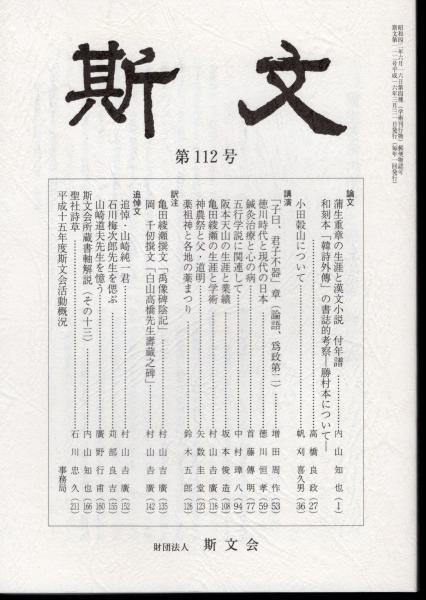 昭和四二年六月一六日第四種(学術刊行物)郵便物認可
斯文第一一二号平成一六年三月三一日発行(毎年一回発行)
斯文
第112号
論文
蒲生重章の生涯と漢文小説 付年譜……内山知也(1)
和刻本「韓詩外傳」の書誌的考察―勝村本について―……高橋良政(27)
小田穀山について……帆刈喜久男(36)
講演
「子曰、君子不器」章(論語、爲政第二)……増田周作(53)
徳川時代と現代の日本……徳川恒孝(59)
鍼灸治療と心の病……首藤傳明(77)
五行学説に関連して……中村璋八(94)
阪本天山の生涯と業績……坂本俊造(108)
亀田綾瀬の生涯と学術……村山吉廣(116)
神農祭と父・道明……矢数圭堂(123)
薬祖神と各地の薬まつり……鈴木五郎(126)
訳注
亀田綾瀬撰文「禹像碑陰記」……村山吉廣(135)
岡 千仭撰文「白山高橋先生壽藏之碑」……村山吉廣(142)
追悼文
追悼・山崎純一君……村山吉廣(152)
石川梅次郎先生を偲ぶ……苅部良吉(155)
山崎道夫先生を憶う……廣野行甫(160)
斯文会所蔵書軸解説(その十三)……内山知也(166)
聖社詩草……石川忠久(211)
平成十五年度斯文会活動概況……事務局
財団法人 斯文会